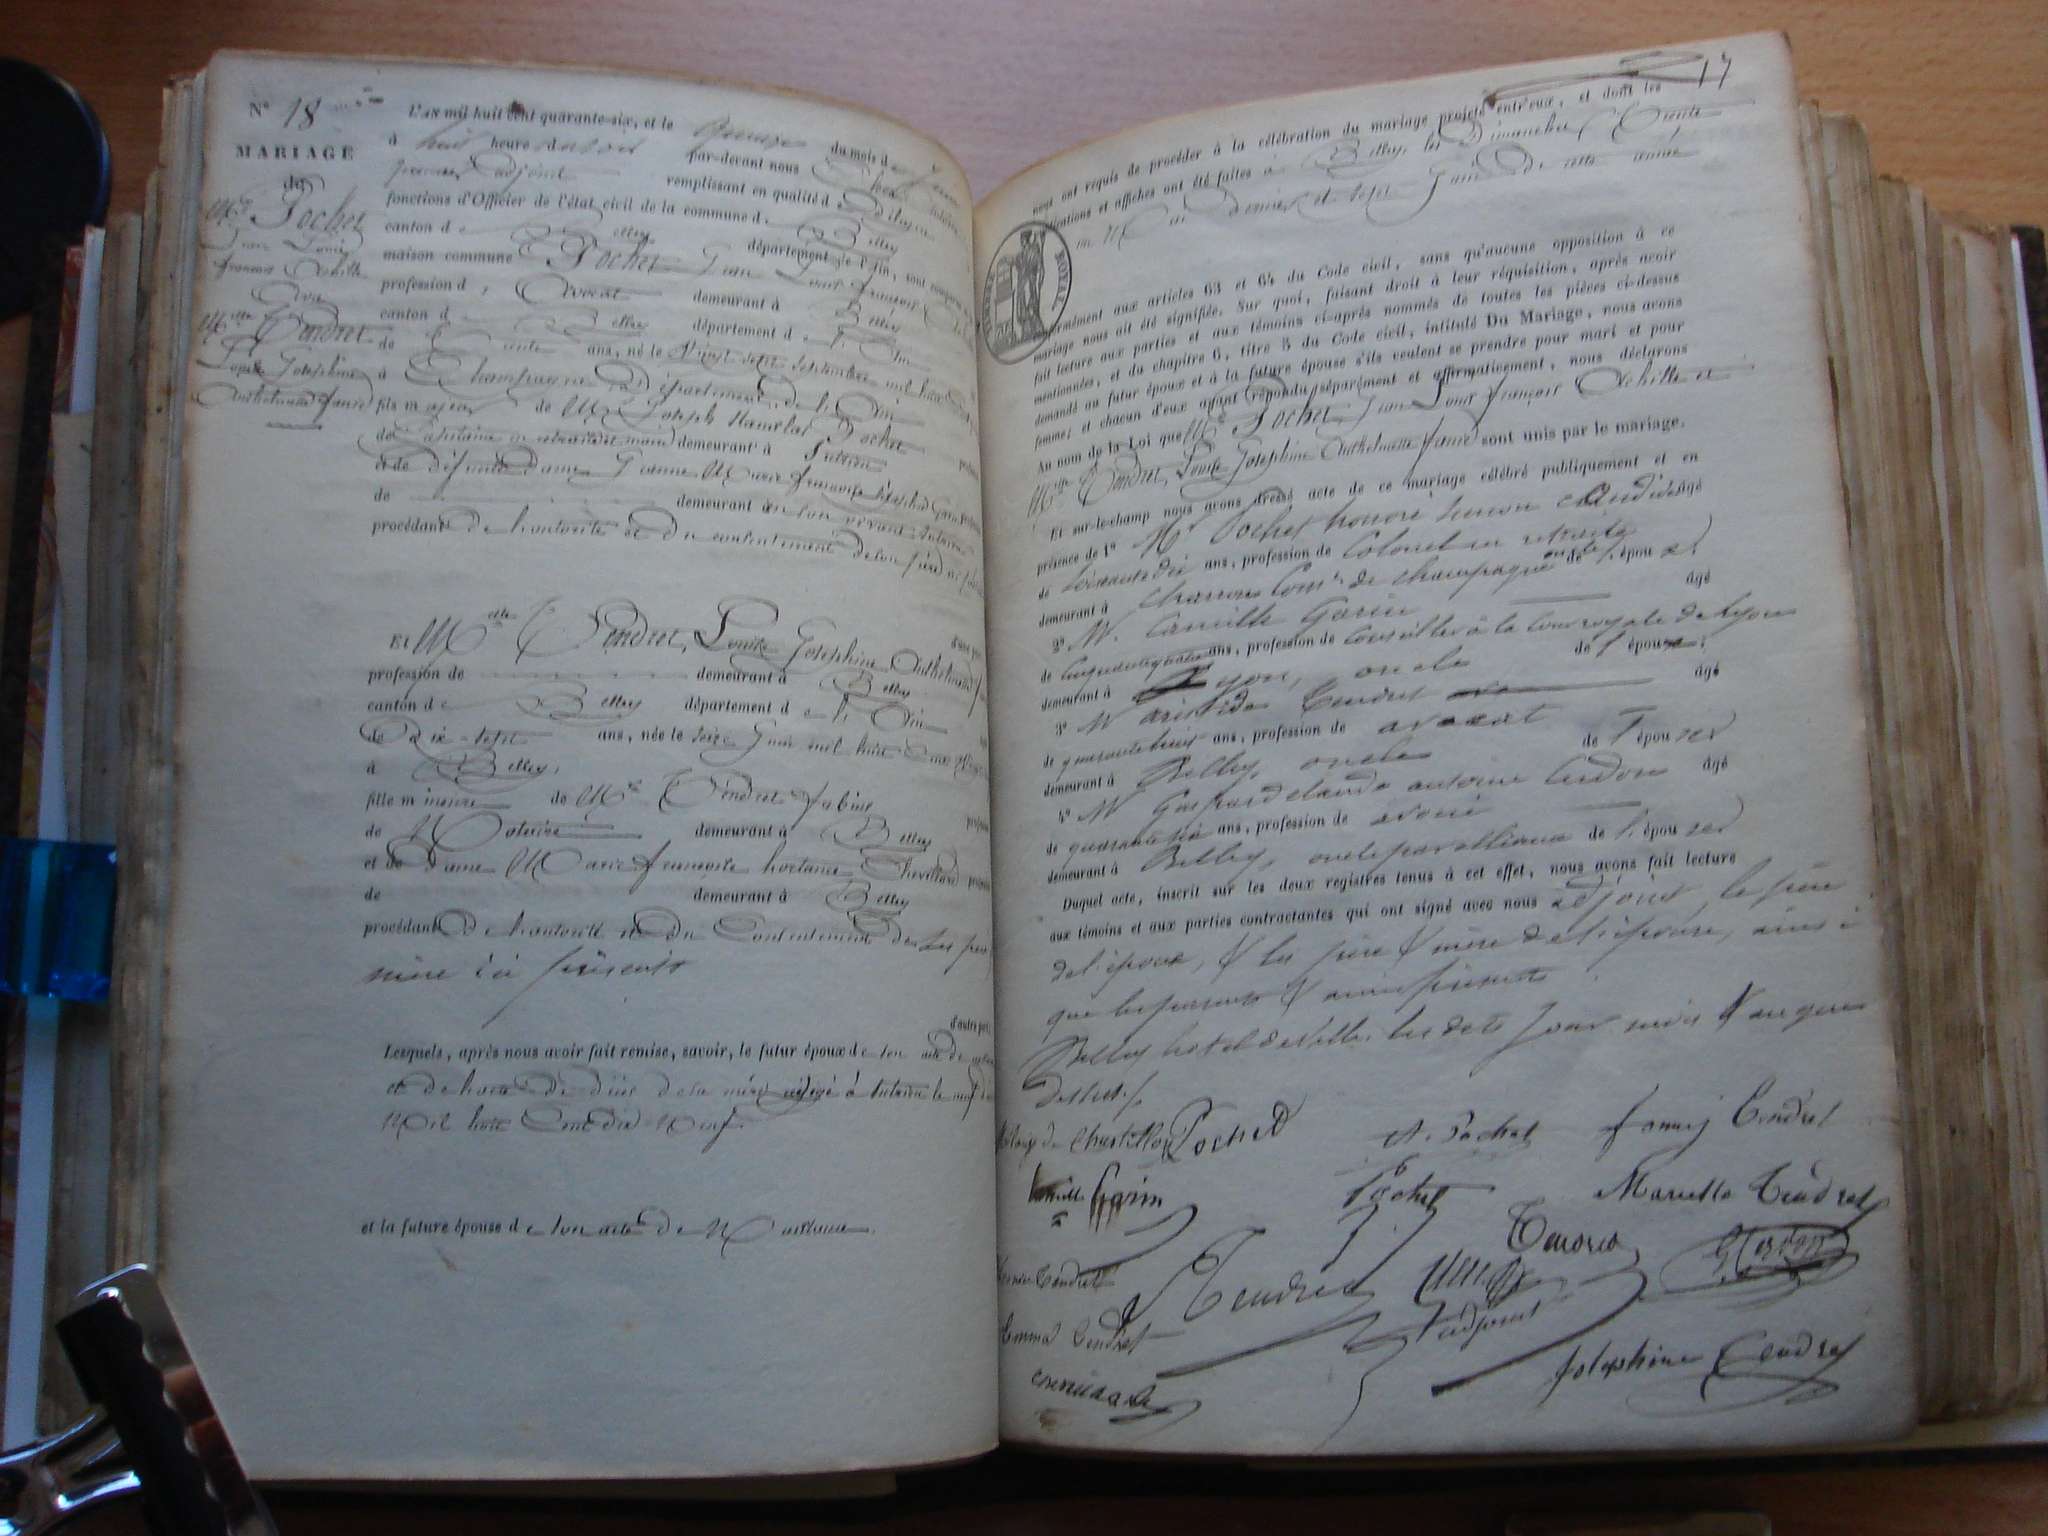 N° 18
MARIAGE
de
Mr Pochet
Jean Louis
françois Achille
Avec
Melle Tendret
Louise Joséphine
Anthelmette fanie
L'AN mil huit cent quarante-six, et le quinze du mois de Juin
à huit heures du soir par-devant nous
premier adjoint remplissant en qualité de
fonctions d'Officier de l'état civil de la commune de Belley
canton de Belley département de l'Ain, sont comparus
maison commune Mr Pochet Jean Louis françois
profession d'Avocat demeurant à Belley
canton de Belley département de l'Ain
de Trente ans, né le Vingt sept Septembre mil huit cent
à Champagne département de l'Ain
fils majeur de Mr Joseph Pochet
de Capitaine en retraite demeurant à
et de défunte Dame Jeanne Marie françoise Garin
de demeurant en son vivant
procédant de l'autorité et du consentement de son père
Et Melle Tendret, Louise Joséphine Anthelmette
profession de demeurant à Belley
canton de Belley département de l'Ain
de Dix-sept ans, née le seize Juin mil huit cent
à Belley,
fille mineure de Mr Tendret fabius
de Notaire demeurant à Belley
et de Dame Marie françoise hortense Chevillard
de demeurant à Belley
procédant De l'autorité et du Consentement de ses père
mère ici présents
d'autre part.
Lesquels, après nous avoir fait remise, savoir, le futur époux de son acte de
et de l'acte de décès de sa mère rédigé à le neuf
Mil huit Cent dix Neuf.
et la future épouse de son acte de Naissance.
17
nous ont requis de procéder à la célébration du mariage projeté entr'eux, et dont les
publications et affiches ont été faites à Belley, les Dimanches Trente
un Mai Dernier et sept Juin de cette année
TIMBRE ROYAL
conformément aux articles 63 et 64 du Code civil, sans qu'aucune opposition à ce
mariage nous ait été signifiée. Sur quoi, faisant droit à leur réquisition, après avoir
fait lecture aux parties et aux témoins ci-après nommés de toutes les pièces ci-dessus
mentionnées, et du chapitre 6, titre 5 du Code civil, intitulé Du Mariage, nous avons
demandé au futur époux et à la future épouse s'ils veulent se prendre pour mari et pour
femme; et chacun d'eux ayant répondu séparément et affirmativement, nous déclarons
Au nom de la Loi que Mr Pochet, Jean Louis françois Achille et
Melle Tendret, Louise Joséphine Anthelmette fanie sont unis par le mariage.
Et sur-le-champ nous avons dressé acte de ce mariage célébré publiquement et en
présence de 1° Mr Pochet honoré âgé
de soixante dix ans, profession de Colonel en retraite
demeurant à Cne de Champagne oncle de l'époux
2° M. Camille Garin âgé
de cinquante quatre ans, profession de Conseiller à la Cour royale de Lyon
demeurant à Lyon, oncle de l'époux,
3° M Aristide Tendret âgé
de quarante huit ans, profession de avocat
demeurant à Belley, oncle de l'épouse
4° M Gaspard claude antoine Cerdon âgé
de quarante six ans, profession de avoué
demeurant à Belley, oncle par alliance de l'épouse
Duquel acte, inscrit sur les deux registres tenus à cet effet, nous avons fait lecture
aux témoins et aux parties contractantes qui ont signé avec nous adjoint, le père
de l'époux, & les père & mère de l'épouse, ainsi
que les parents & amis présents.
Belley hotel de ville, les dits jour mois & an que
dessus./.
Pochet A. Pochet fanny Tendret
Camille Garin Pochet Mariette Tendret
Tendret Cerdon
Tendret
Tendret
adjoint
Emma Tendret Joséphine Tendret